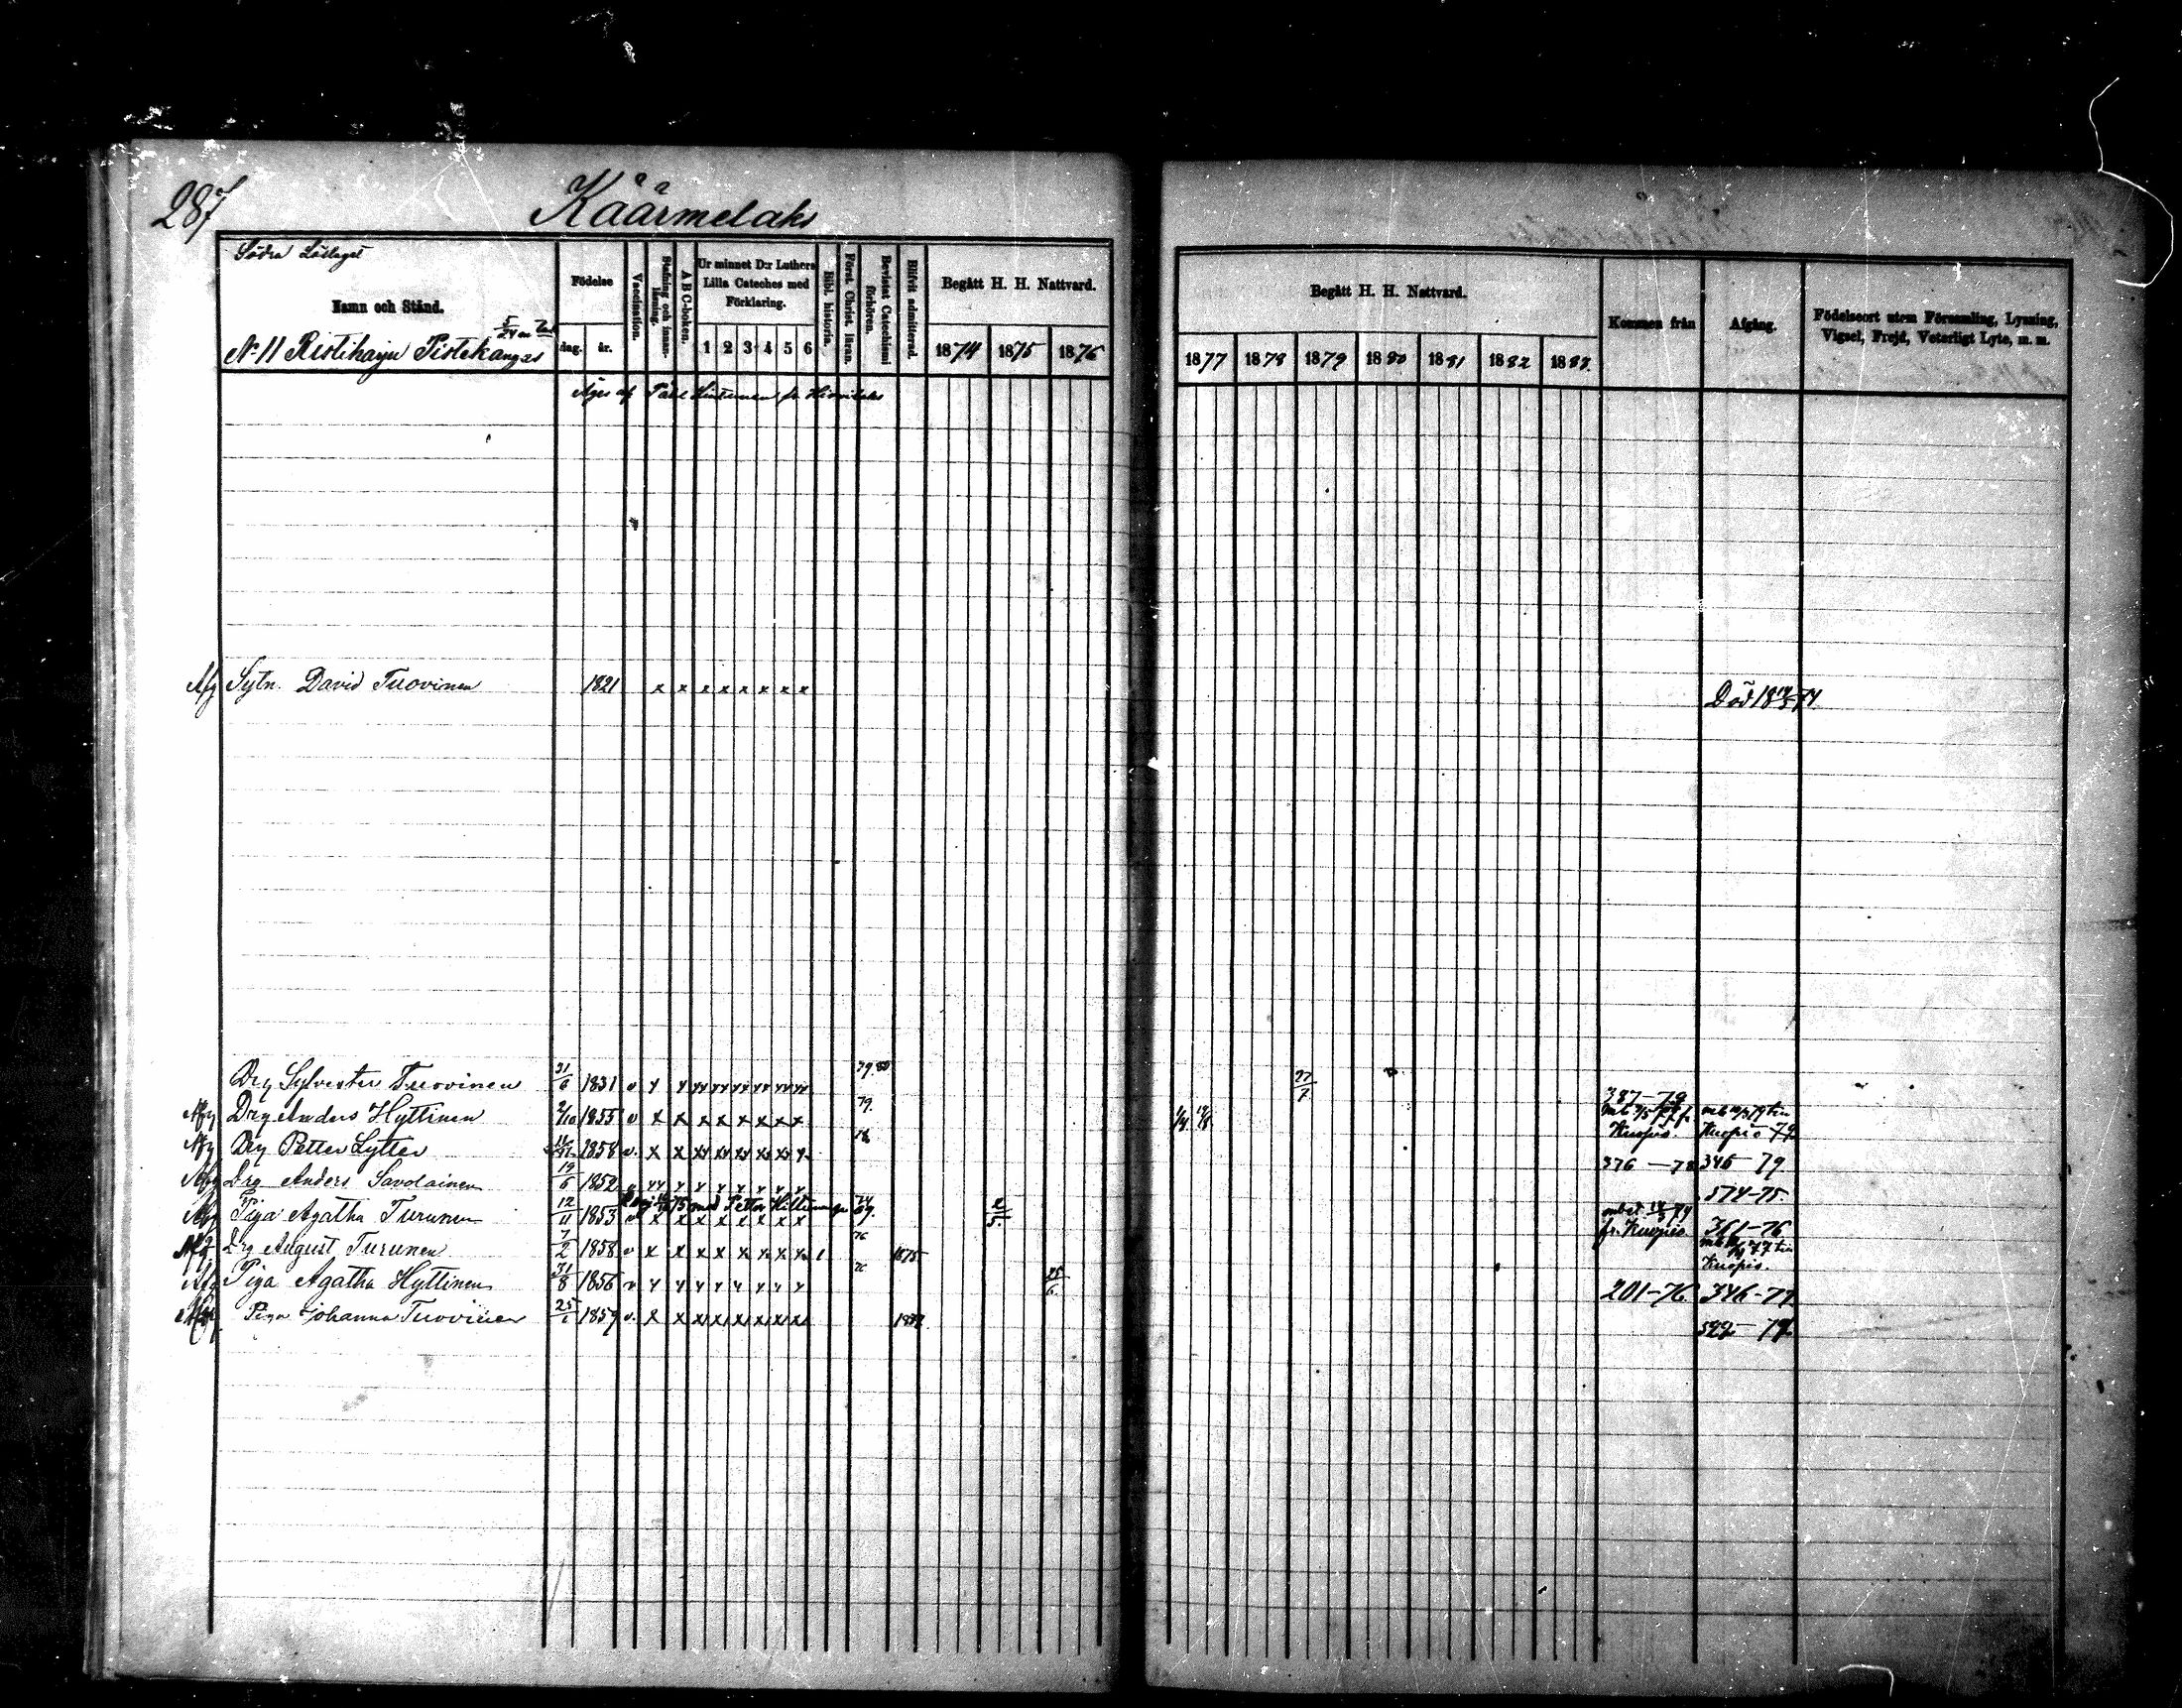 287
Käärmelaks
Södra Lötlaget
Namn och Stånd.
5/24 m Tal
No 11 Ristiharju Pistekangas
Födelse
dag. år.
Vaccination.
Stafning och innan-läsning.
A B C-boken.
Ur minnet D:r Luthers
Lilla Cateches med
Förklaring.
1 2 3 4 5 6
Bibl. historia.
Först. Christ. läran.
Bevistat Catechismi förhören.
Blifvit admitterad.
Begått H. H. Nattvard.
1874 1875 1876
Begått H. H. Nattvard.
1877 1878 1879 1880 1881 1882 1883
Kommen från
Afgång.
Födelseort utom Församling, Lysning,
Vigsel, Frejd, Veterligt Lyte, m. m.
Äges af Påhl
Afg Sytn. David Tuovinen 1821 x x x x x x x x Död 18 74
Drg Sylvester Tuovinen 31/6 1831 v 79.80 387-79
Afg Drg Anders Hyttinen 2/10 1855 v x x x x x x x x 79. Kuopio. Kuopio 79
Afg Drg Petter Lytter 1858 v. x x 376-78 346-79
Afg Drg Anders Savolainen 19/6 1852 574-75.
Afg Piga Agatha Turunen 12/11 1853 v x x x x x x x x 2/5. fr. Kuopio 361-76
Afg Drg August Turunen 7/2 1858 v x x x x x x x x 76 1875. Kuopio.
Afg Piga Agatha Hyttinen 31/8 1856 v 25/6 201-76 346-77
Afg Piga Johanna Tuovinen 1859 v. x x 522-79